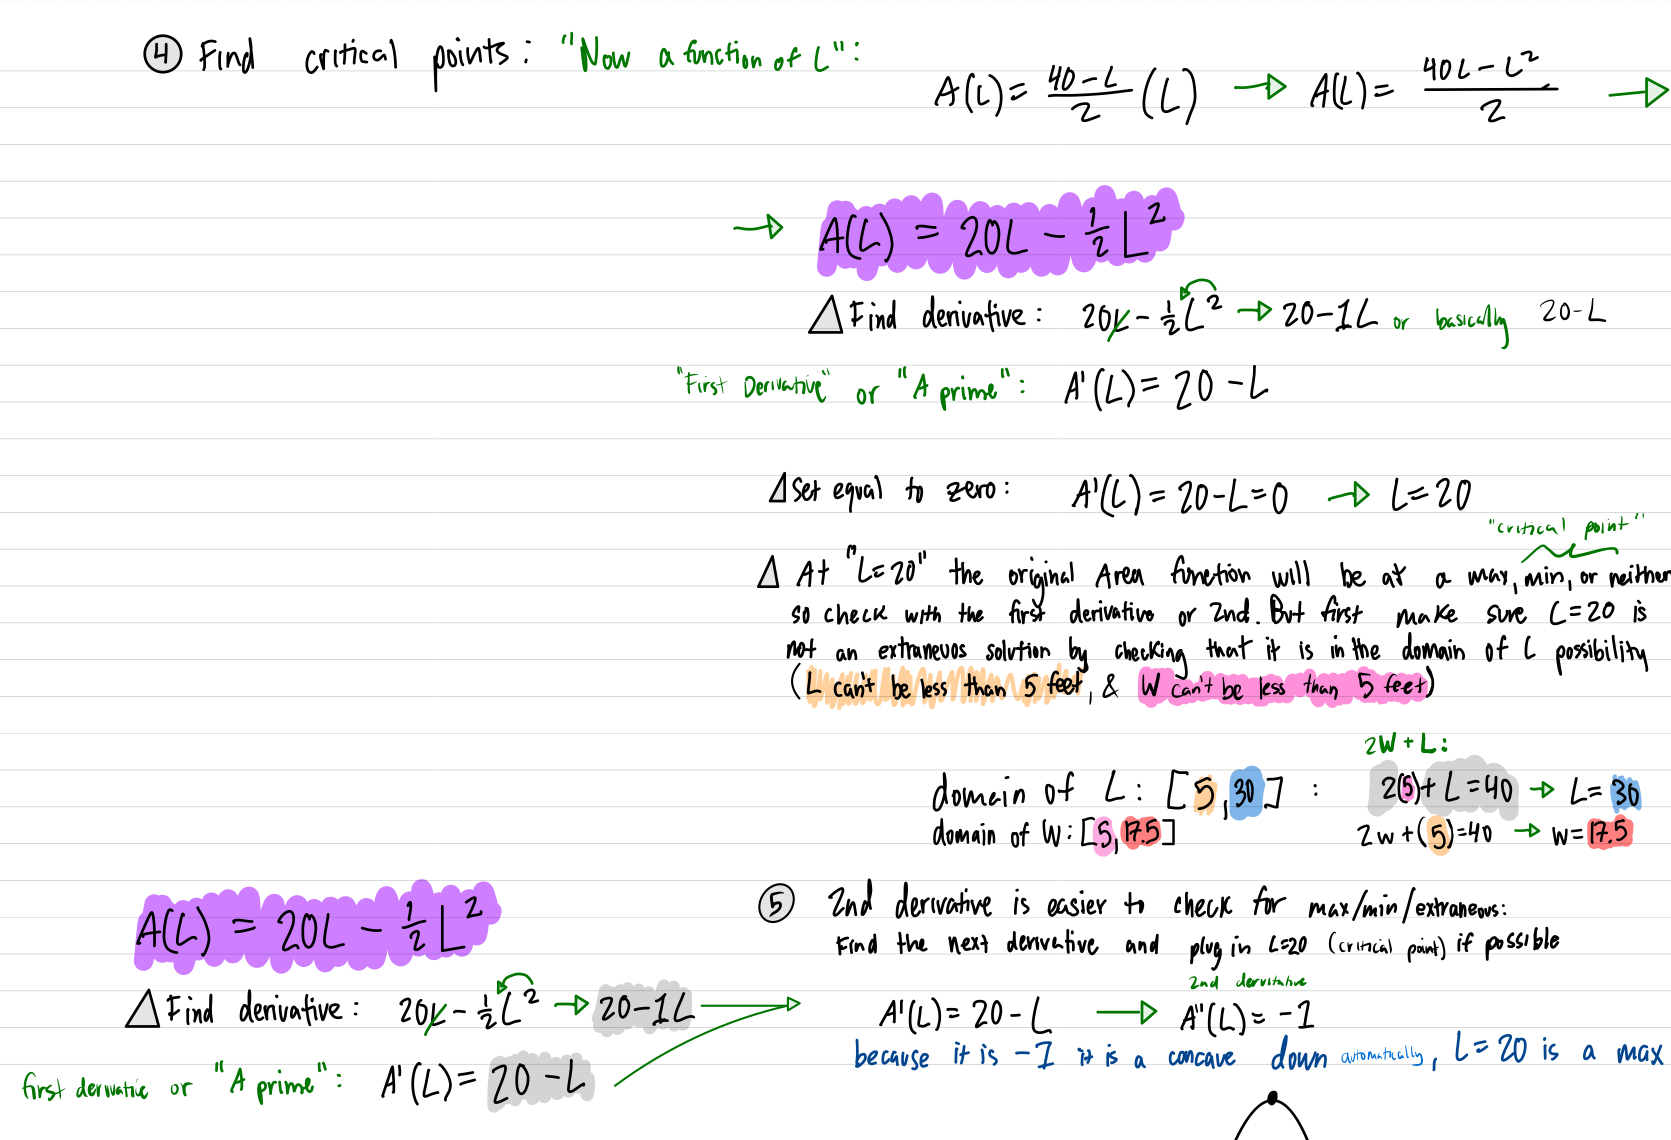 ④ Find critical points: "Now a function of L":
A(L) = \frac{40-L}{2} (L) → A(L) = \frac{40L-L²}{2} →
→ A(L) = 20L - \frac{1}{2} L²
△ Find derivative: 20L - \frac{1}{2} L² → 20-1L or basically 20-L
"First Derivative" or "A prime": A'(L) = 20 - L
△ Set equal to zero: A'(L) = 20-L=0 → L=20
"critical point"
△ At "L=20" the original Area function will be at a max, min, or neither
so check with the first derivative or 2nd. But first make sure L=20 is
not an extraneuos solution by checking that it is in the domain of L possibility
(L can't be less than 5 feet, & W can't be less than 5 feet)
2W + L:
domain of L: [5, 30] : 2(5)+L=40 → L=30
domain of W: [5, 17.5] 2w+(5)=40 → w=17.5
⑤ 2nd derivative is easier to check for max/min/extraneous:
Find the next derivative and plug in L=20 (critical point) if possible
2nd derivitative
A'(L) = 20 - L → A''(L) = -1
because it is -1 it is a concave down automatically, L=20 is a max
A(L) = 20L - \frac{1}{2} L²
△ Find derivative: 20L - \frac{1}{2} L² → 20-1L
first derivative or "A prime": A'(L) = 20 - L